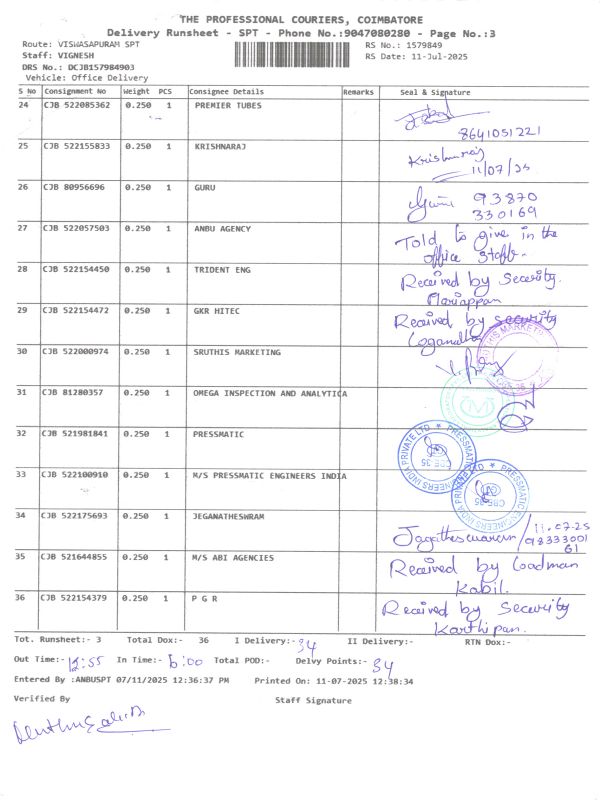 THE PROFESSIONAL COURIERS, COIMBATORE
Delivery Runsheet - SPT - Phone No.:9047080280 - Page No.:3
Route: VISWASAPURAM SPT RS No.: 1579849
Staff: VIGNESH RS Date: 11-Jul-2025
DRS No.: DCJB157984903
Vehicle: Office Delivery
S No Consignment No Weight PCS Consignee Details Remarks Seal & Signature
24 CJB 522085362 0.250 1 PREMIER TUBES
8641051221
25 CJB 522155833 0.250 1 KRISHNARAJ Krishnaraj
11/07/25
26 CJB 80956696 0.250 1 GURU 93870
330169
27 CJB 522057503 0.250 1 ANBU AGENCY Told to give in the
office staff.
28 CJB 522154450 0.250 1 TRIDENT ENG Received by Security.
Mariappan
29 CJB 522154472 0.250 1 GKR HITEC Received by security
30 CJB 522000974 0.250 1 SRUTHIS MARKETING
31 CJB 81280357 0.250 1 OMEGA INSPECTION AND ANALYTICA
32 CJB 521981841 0.250 1 PRESSMATIC PRESSMATIC ENGINEERS INDIA PRIVATE LTD CBE-35
33 CJB 522100910 0.250 1 M/S PRESSMATIC ENGINEERS INDIA PRESSMATIC ENGINEERS INDIA PRIVATE LTD CBE-35
34 CJB 522175693 0.250 1 JEGANATHESWRAM 11.07.25
Jagatheswaran / 98333001
61
35 CJB 521644855 0.250 1 M/S ABI AGENCIES Received by Loadman
Kabil.
36 CJB 522154379 0.250 1 P G R Received by Security
Karthipan.
Tot. Runsheet:- 3 Total Dox:- 36 I Delivery:- 34 II Delivery:- RTN Dox:-
Out Time:- 12:55 In Time:- 6:00 Total POD:- Delvy Points:- 34
Entered By :ANBUSPT 07/11/2025 12:36:37 PM Printed On: 11-07-2025 12:38:34
Verified By Staff Signature